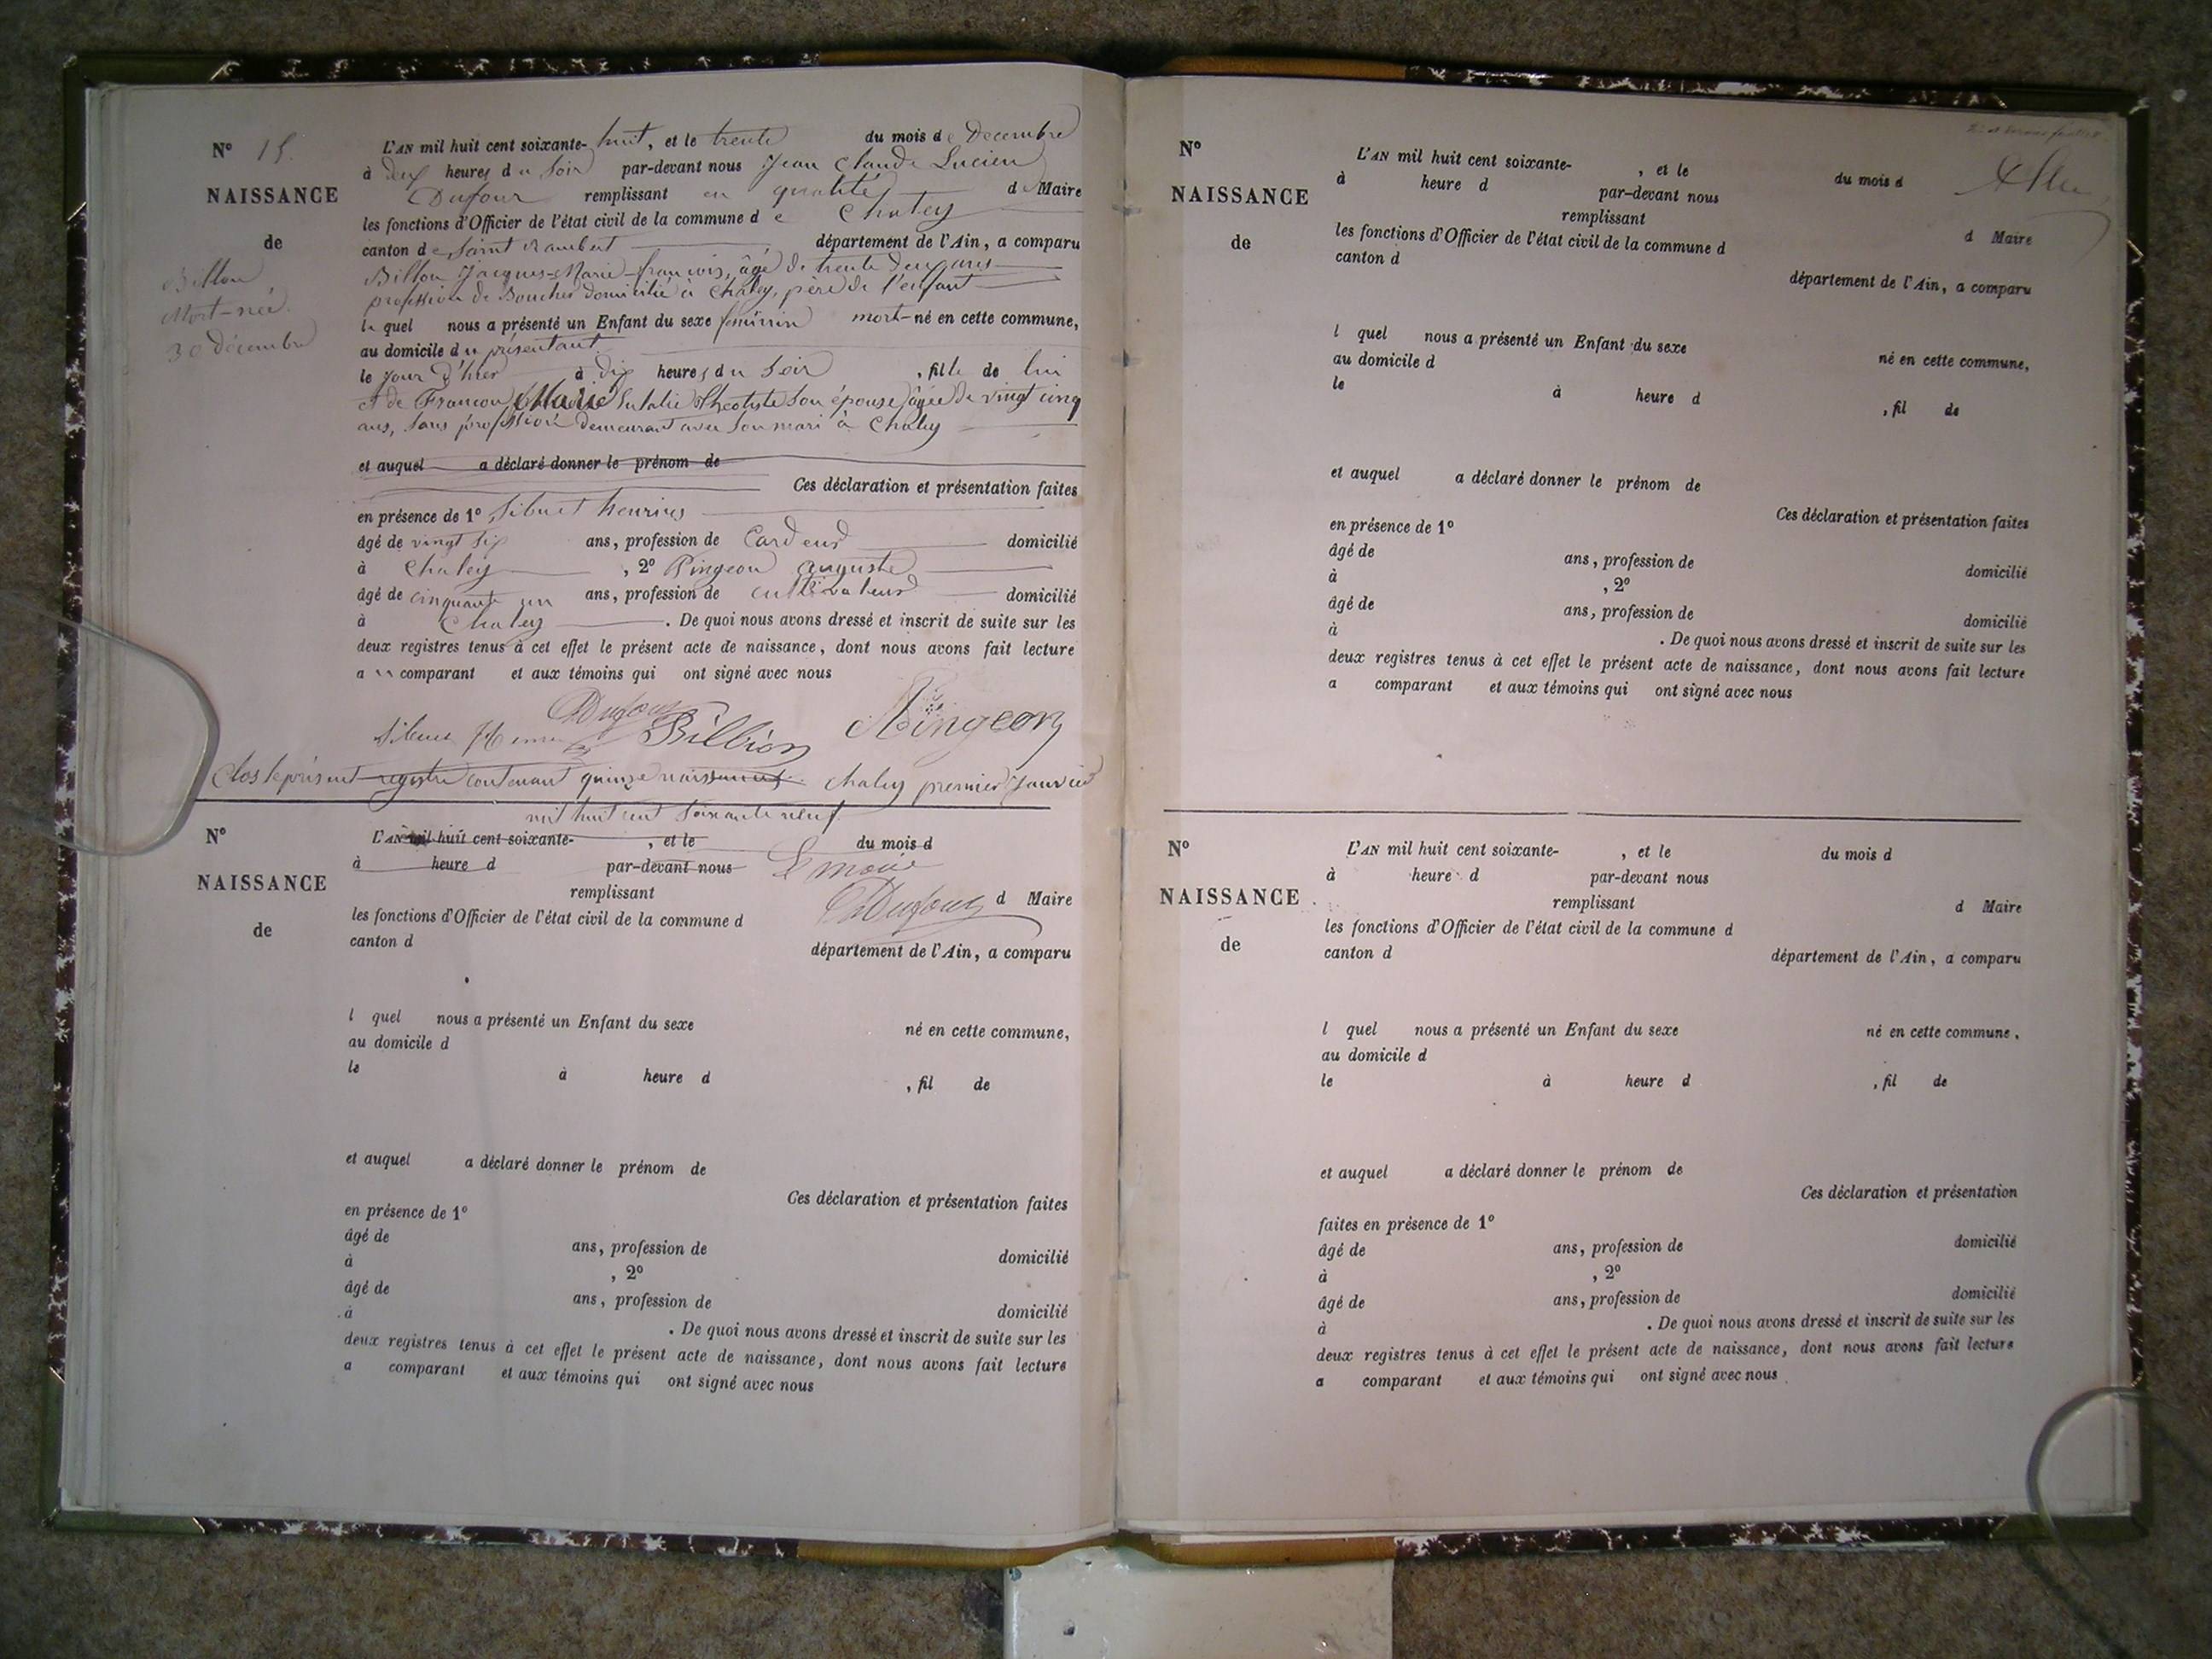 N° 15.
NAISSANCE
de
Billon
Mort-née.
30 décembre
L'AN mil huit cent soixante-huit, et le trente du mois de Décembre
à deux heures du soir par-devant nous Jean Claude Lucien
Dufour remplissant en qualité de Maire
les fonctions d'Officier de l'état civil de la commune de Chaley
canton de Saint Rambert département de l'Ain, a comparu
Billon Jacques-Marie-françois, âgé de trente deux ans
profession de Boucher domicilié à Chaley, père de l'enfant
lequel nous a présenté un Enfant du sexe féminin mort-né en cette commune,
au domicile du présentant.
le jour d'hier à dix heures du soir, fille de lui
et de Françon Marie Eulalie Théotiste son épouse, âgée de vingt cinq
ans, sans profession demeurant avec son mari à Chaley
et auquel a déclaré donner le prénom de
Ces déclaration et présentation faites
en présence de 1° Sibuet henrius
âgé de vingt six ans, profession de Cardeur domicilié
à Chaley, 2° Pingeon auguste
âgé de cinquante un ans, profession de cultivateur domicilié
à Chaley. De quoi nous avons dressé et inscrit de suite sur les
deux registres tenus à cet effet le présent acte de naissance, dont nous avons fait lecture
a comparant et aux témoins qui ont signé avec nous
Dufour
Sibuet Billion Pingeon
Clos le présent registre contenant quinze naissances. Chaley premier Janvier
mil huit cent soixante neuf.
N°
NAISSANCE
de
L'AN mil huit cent soixante- , et le du mois d
à heure d par-devant nous Le maire
remplissant Dufour d Maire
les fonctions d'Officier de l'état civil de la commune d
canton d département de l'Ain, a comparu
l quel nous a présenté un Enfant du sexe né en cette commune,
au domicile d
le à heure d , fil de
et auquel a déclaré donner le prénom de
Ces déclaration et présentation faites
en présence de 1°
âgé de ans, profession de domicilié
à , 2°
âgé de ans, profession de domicilié
à . De quoi nous avons dressé et inscrit de suite sur les
deux registres tenus à cet effet le présent acte de naissance, dont nous avons fait lecture
a comparant et aux témoins qui ont signé avec nous
N°
NAISSANCE
de
L'AN mil huit cent soixante- , et le du mois d
à heure d par-devant nous
remplissant d Maire
les fonctions d'Officier de l'état civil de la commune d
canton d département de l'Ain, a comparu
l quel nous a présenté un Enfant du sexe né en cette commune,
au domicile d
le à heure d , fil de
et auquel a déclaré donner le prénom de
Ces déclaration et présentation faites
en présence de 1°
âgé de ans, profession de domicilié
à , 2°
âgé de ans, profession de domicilié
à . De quoi nous avons dressé et inscrit de suite sur les
deux registres tenus à cet effet le présent acte de naissance, dont nous avons fait lecture
a comparant et aux témoins qui ont signé avec nous
N°
NAISSANCE
de
L'AN mil huit cent soixante- , et le du mois d
à heure d par-devant nous
remplissant d Maire
les fonctions d'Officier de l'état civil de la commune d
canton d département de l'Ain, a comparu
l quel nous a présenté un Enfant du sexe né en cette commune,
au domicile d
le à heure d , fil de
et auquel a déclaré donner le prénom de
Ces déclaration et présentation
faites en présence de 1°
âgé de ans, profession de domicilié
à , 2°
âgé de ans, profession de domicilié
à . De quoi nous avons dressé et inscrit de suite sur les
deux registres tenus à cet effet le présent acte de naissance, dont nous avons fait lecture
a comparant et aux témoins qui ont signé avec nous